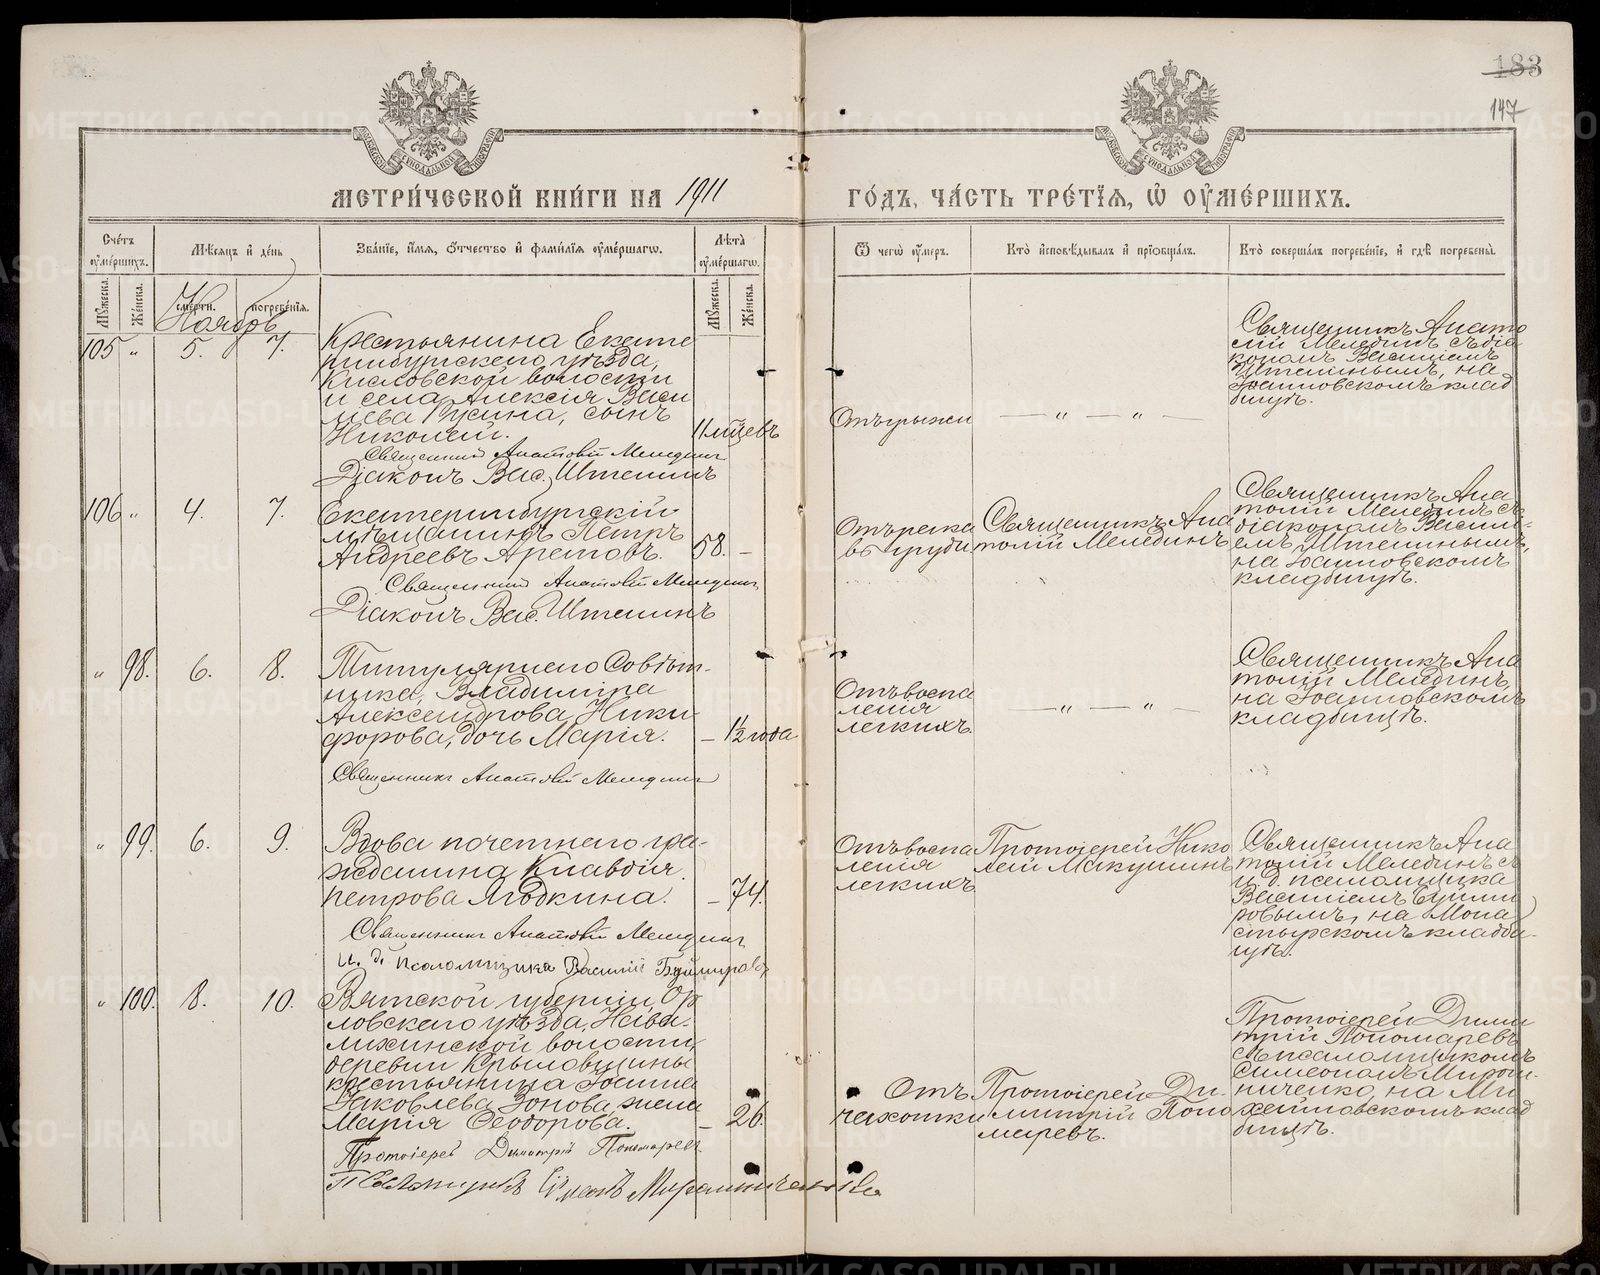 183
147
МЕТРИ́ЧЕСКОЙ КНИ́ГИ НА 1911
ГО́ДЪ, ЧА́СТЬ ТРЕ́ТЇѦ, Ѡ҆ ОУ҆МЕ́РШИХЪ.
Сче́тъ оу҆ме́ршихъ.
Мѣ́сяцъ и҆ де́нь
Зва́нїе, и҆́мя, ѻ҆́тчество и҆ фами́лїя оу҆ме́ршагѡ.
Лѣта̀ оу҆ме́ршагѡ.
Ѿ чегѡ̀ оу҆́меръ.
Кто̀ и҆сповѣ́дывалъ и҆ прїѻбща́лъ.
Кто̀ соверша́лъ погребе́нїе, и҆ гдѣ̀ погребены̀.
Му́жеска.
Же́нска.
сме́рти.
погребе́нїя.
Му́жеска.
Же́нска.
Ноябрь
105 „ 5. 7.
Крестьянина Екате
ринбургскаго уѣзда,
Кисловской волости
и села Алексія Васи
льева Русина, сынъ
Николай.
11 мѣцевъ
Священникъ Анатолій Мелединъ
Діаконъ Вас. Штенинъ
Отъ грыжи
— „ — „ —
Священникъ Анато
лій Мелединъ съ діа
кономъ Василіемъ
Штенинымъ, на
Іоанновскомъ клад
бищѣ.
106 „ 4. 7.
Екатеринбургскій
мѣщанинъ Петръ
Андреевъ Арефовъ.
58. –
Священникъ Анатолій Мелединъ
Діаконъ Вас. Штенинъ
Отъ рака
въ груди
Священникъ Ана
толій Мелединъ
Священникъ Ана
толій Мелединъ съ
діакономъ Васили-
емъ Штенинымъ,
на Іоанновскомъ
кладбищѣ.
„ 98. 6. 8.
Титулярнаго Совѣт-
ника, Владиміра
Александрова Ники-
форова, дочь Марія.
– 1½ года
Священникъ Анатолій Мелединъ
Отъ воспа
ленія
легкихъ.
— „ — „ —
Священникъ Ана
толій Мелединъ,
на Іоанновскомъ
кладбищѣ.
„ 99. 6. 9.
Вдова почетнаго гра-
жданина Клавдія
Петрова Ягодкина.
– 74.
Священникъ Анатолій Мелединъ
и. д. псаломщика Василій
Отъ воспа
ленія
легкихъ
Протоіерей Нико
лай Макушинъ
Священникъ Ана
толій Мелединъ съ
и. д. псаломщика
Василіемъ
на Мона
стырскомъ кладби-
щѣ.
„ 100. 8. 10.
Вятской губерніи, Ор
ловскаго уѣзда,
волости,
деревни Крыловщины
крестьянина Іоанна
Яковлева Зонова, жена
Марія Ѳеодорова.
– 26.
Протоіерей Димитрій Пономаревъ
Псаломщикъ Симеонъ Мирошниченко
Отъ
чахотки
Протоіерей Ди
митрій Поно
маревъ.
Протоіерей Дими
трій Пономаревъ
съ псаломщикомъ
Симеономъ Мирош-
ниченко, на Ми
хайловскомъ клад
бищѣ.
METRIKI.GASO-URAL.RU